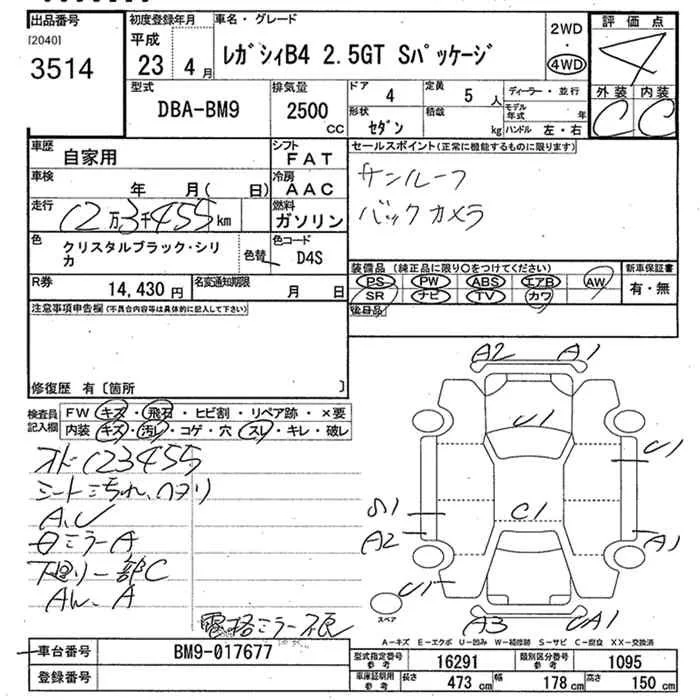 出品番号 初度登録年月 車名・グレード 評価点
[2040] 平成 2WD
3514 23年 4月 レガシィB4 2.5GT Sパッケージ ・ 4
4WD
型式 排気量 ドア 4 定員 5人 ディーラー・並行 外装 内装
DBA-BM9 2500 CC 形状 セダン 積載 kg モデル年式 年 C C
ハンドル 左・右
車歴 自家用 シフト FAT セールスポイント(正常に機能するものに限ります)
車検 年 月( 日) 冷房 AAC サンルーフ
走行 12万3千455km 燃料 ガソリン バックカメラ
色 クリスタルブラック・シリカ 色替 色コード D4S
装備品(純正品に限り○をつけてください) 新車保証書
R券 14,430円 名変通知期限 月 日 PS PW ABS エアB AW 有・無
SR ナビ TV カワ
注意事項申告欄(不具合内容等は具体的に記入して下さい) 後日品
修復歴 有〔箇所 〕
A2 A1
検査員記入欄 FW キズ・飛石・ヒビ割・リペア跡・×要
内装 キズ・汚レ・コゲ・穴・スレ・キレ・破レ
U1 U1
オド123455
シート汚れ、ヘタリ
A、U S1 C1
ミラーA A2 A1
下廻り一部C
AW、A U1
スペア A3 UA1
電格ミラー不良
A-キズ E-エクボ U-凹み W-補修跡 S-サビ C-腐食 XX-交換済
車台番号 BM9-017677 型式指定番号 参考 16291 類別区分番号 参考 1095
登録番号 車庫証明用 参考 長さ 473 cm 幅 178 cm 高さ 150 cm